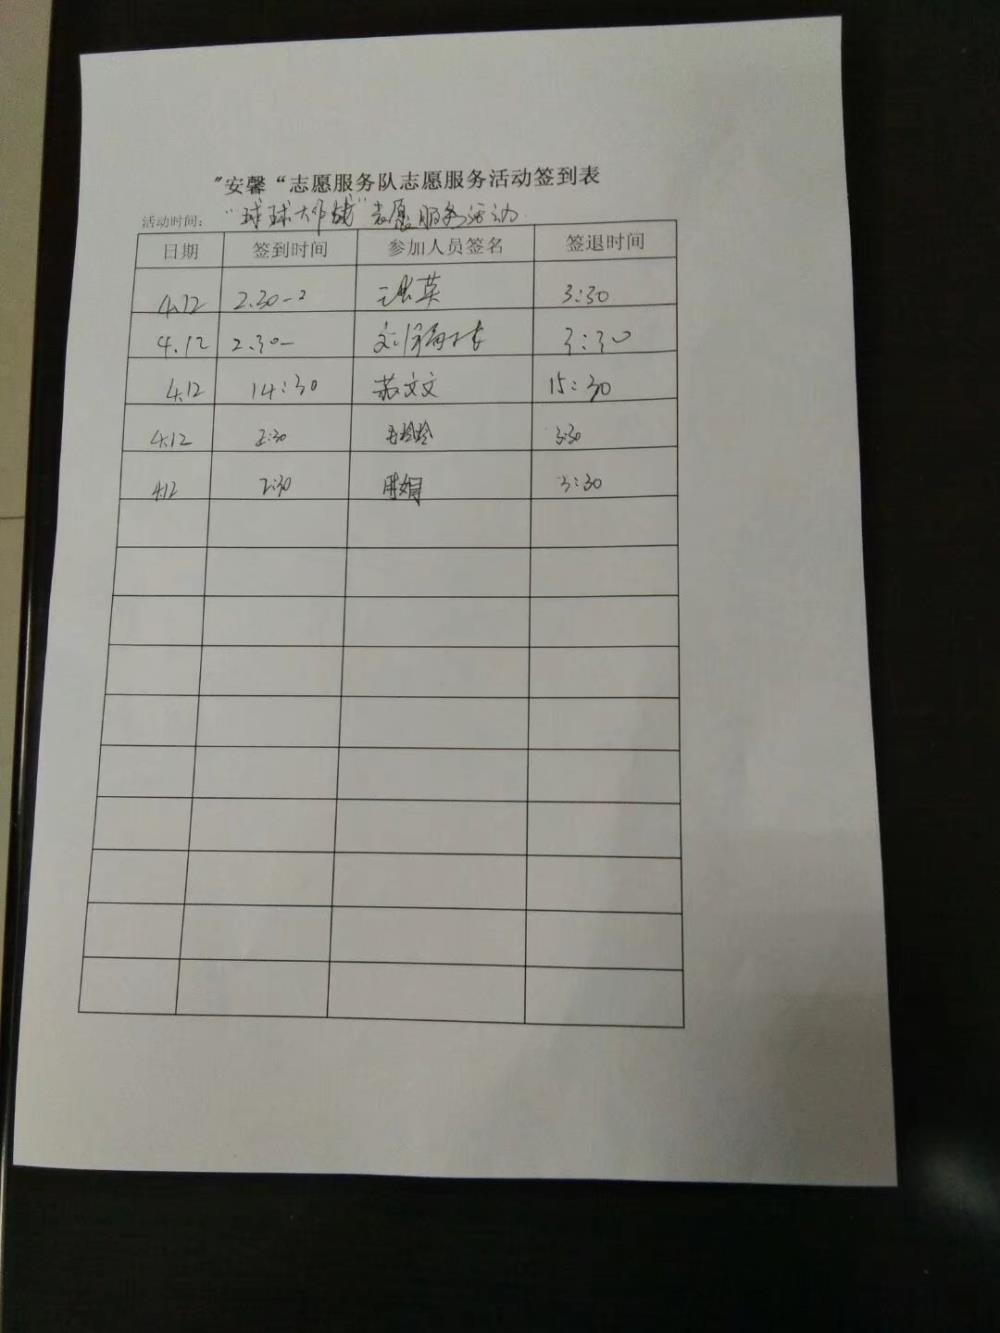 "安馨"志愿服务队志愿服务活动签到表
活动时间："球球大作战"志愿服务活动
日期 签到时间 参加人员签名 签退时间
4.12 2.30-2 张英 3:30
4.12 2.30- 3:30
4.12 14:30 苏文文 15:30
4.12 2:30 玲玲 3:30
4.12 2:30 娟 3:30